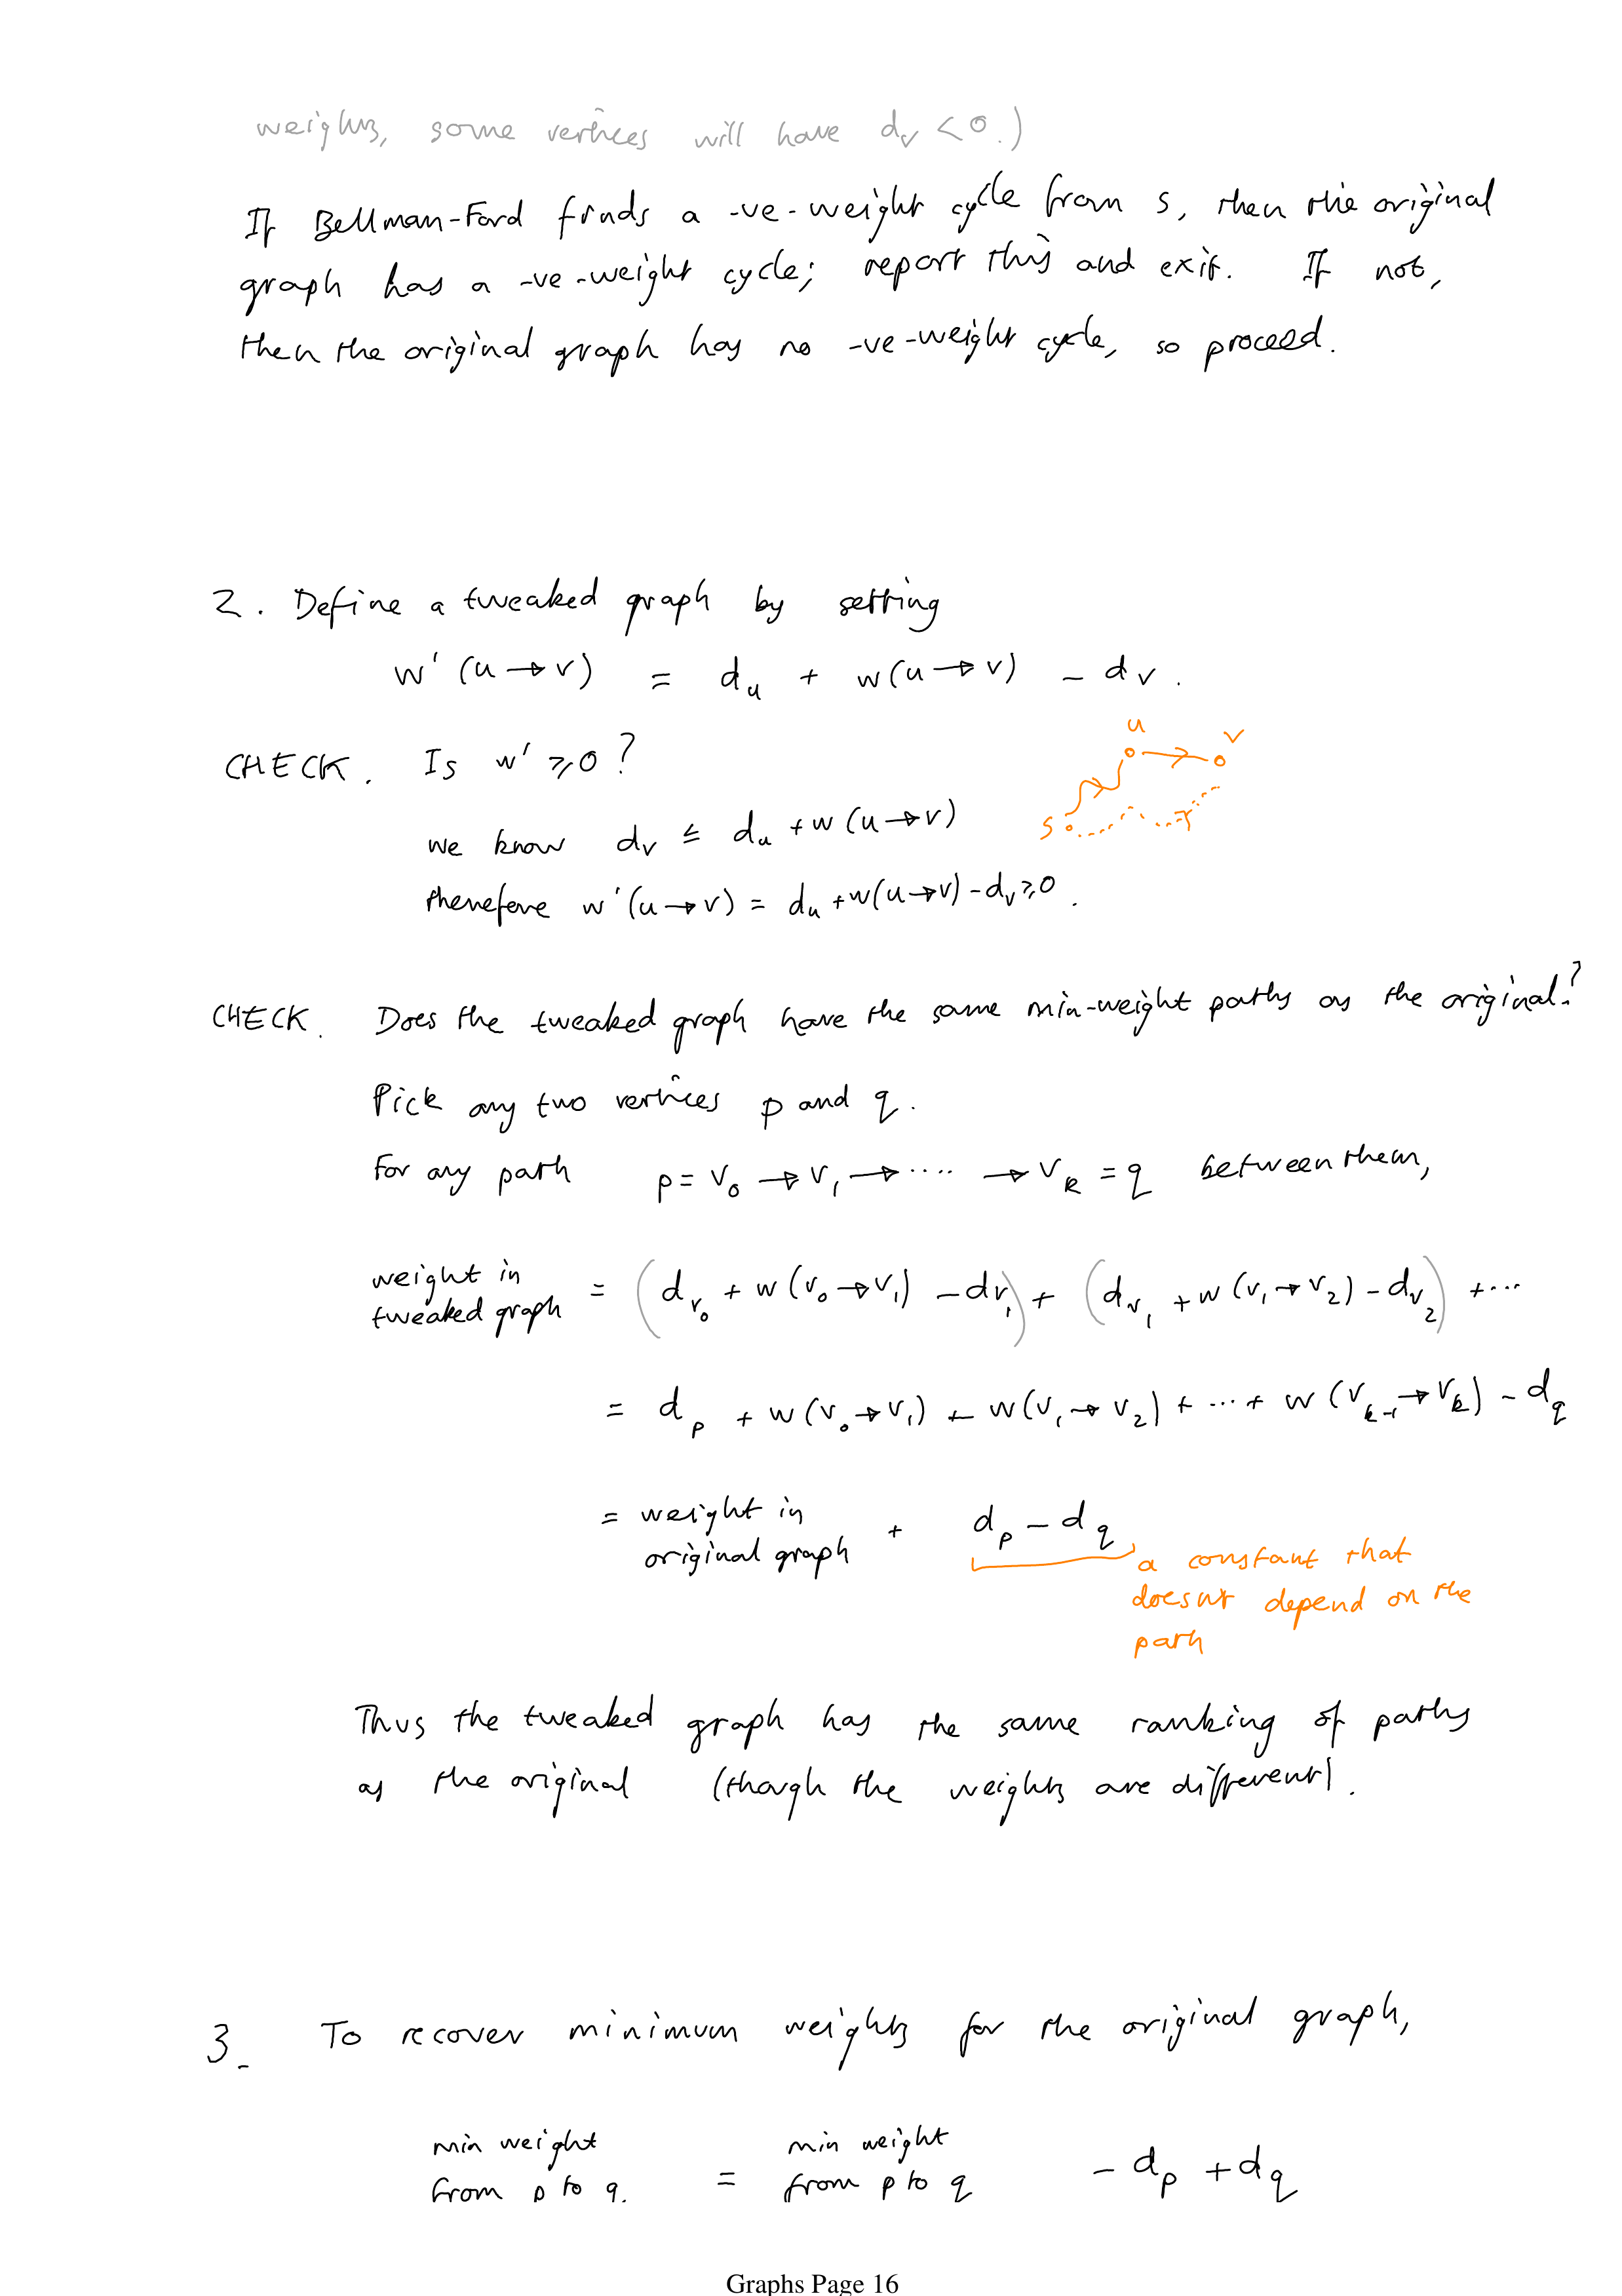 weights, some vertices will have d_v < 0.)
If Bellman-Ford finds a -ve-weight cycle from s, then the original
graph has a -ve-weight cycle; report this and exit. If not,
then the original graph has no -ve-weight cycle, so proceed.
2. Define a tweaked graph by setting
w'(u → v) = d_u + w(u → v) - d_v.
CHECK. Is w' ⩾ 0?
u
v
s
we know d_v ≤ d_u + w(u → v)
therefore w'(u → v) = d_u + w(u → v) - d_v ⩾ 0.
CHECK. Does the tweaked graph have the same min-weight paths as the original?
Pick any two vertices p and q.
For any path p = v_0 → v_1 → .... → v_k = q between them,
weight in
tweaked graph = (d_{v_0} + w(v_0 → v_1) - d_{v_1}) + (d_{v_1} + w(v_1 → v_2) - d_{v_2}) + ...
= d_p + w(v_0 → v_1) + w(v_1 → v_2) + ... + w(v_{k-1} → v_k) - d_q
= weight in
original graph + d_p - d_q
a constant that
doesn't depend on the
path
Thus the tweaked graph has the same ranking of paths
as the original (though the weights are different).
3. To recover minimum weights for the original graph,
min weight
from p to q. = min weight
from p to q - d_p + d_q
Graphs Page 16